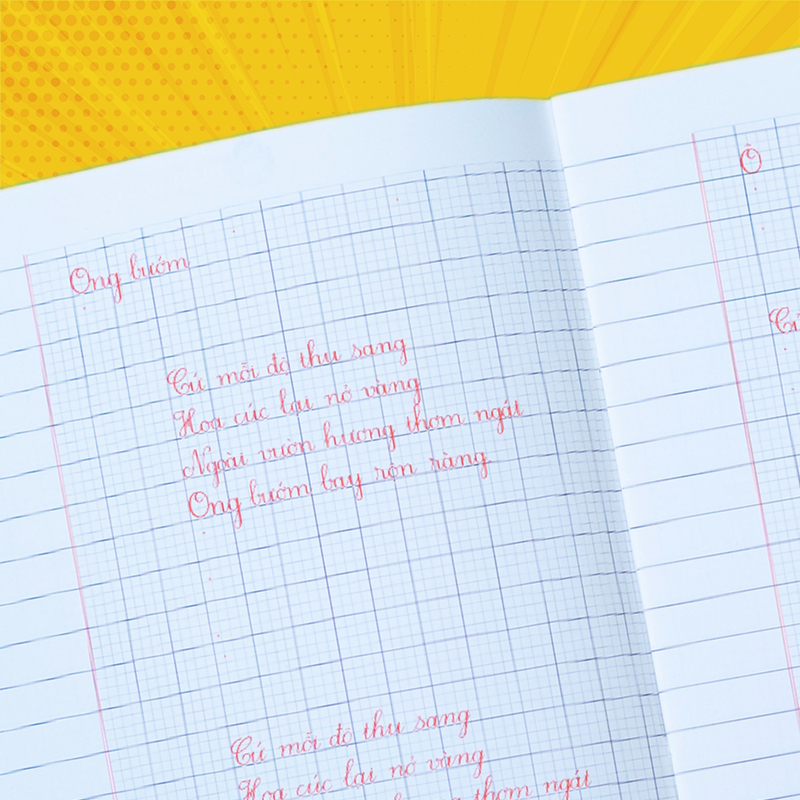 Ong bướm
Cứ mỗi độ thu sang
Hoa cúc lại nở vàng
Ngoài vườn hương thơm ngát
Ong bướm bay rộn ràng.
Cứ mỗi độ thu sang
Hoa cúc lại nở vàng
thơm ngát
Ô
Cứ